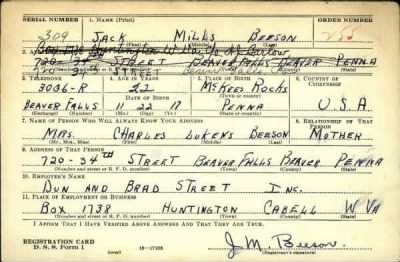 SERIAL NUMBER 1. NAME (Print) ORDER NUMBER
309 JACK MILLS BEESON
(First) (Middle) (Last)
720-34th STREET BEAVER FALLS BEAVER PENNA
720-34th STREET Beaver Falls
3. TELEPHONE 4. AGE IN YEARS 5. PLACE OF BIRTH 6. COUNTRY OF CITIZENSHIP
3036-R 22 McKEES ROCKS
DATE OF BIRTH (Town or county)
BEAVER FALLS 11 22 17 PENNA U.S.A.
(Exchange) (Number) (Mo.) (Day) (Yr.) (State or country)
7. NAME OF PERSON WHO WILL ALWAYS KNOW YOUR ADDRESS 8. RELATIONSHIP OF THAT PERSON
MRS. CHARLES LUKENS BEESON MOTHER
(Mr., Mrs., Miss) (First) (Middle) (Last)
9. ADDRESS OF THAT PERSON
720-34th STREET BEAVER FALLS BEAVER PENNA
(Number and street or R. F. D. number) (Town) (County) (State)
10. EMPLOYER'S NAME
DUN AND BRAD STREET INC.
11. PLACE OF EMPLOYMENT OR BUSINESS
BOX 1738 HUNTINGTON CABELL W VA
(Number and street or R. F. D. number) (Town) (County) (State)
I AFFIRM THAT I HAVE VERIFIED ABOVE ANSWERS AND THAT THEY ARE TRUE.
REGISTRATION CARD
D. S. S. Form 1 (over) 16-17105 J.M. Beeson
(Registrant's signature)